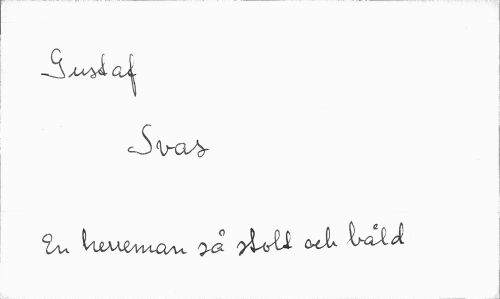 Gustaf
Svas
En herreman så stolt och båld